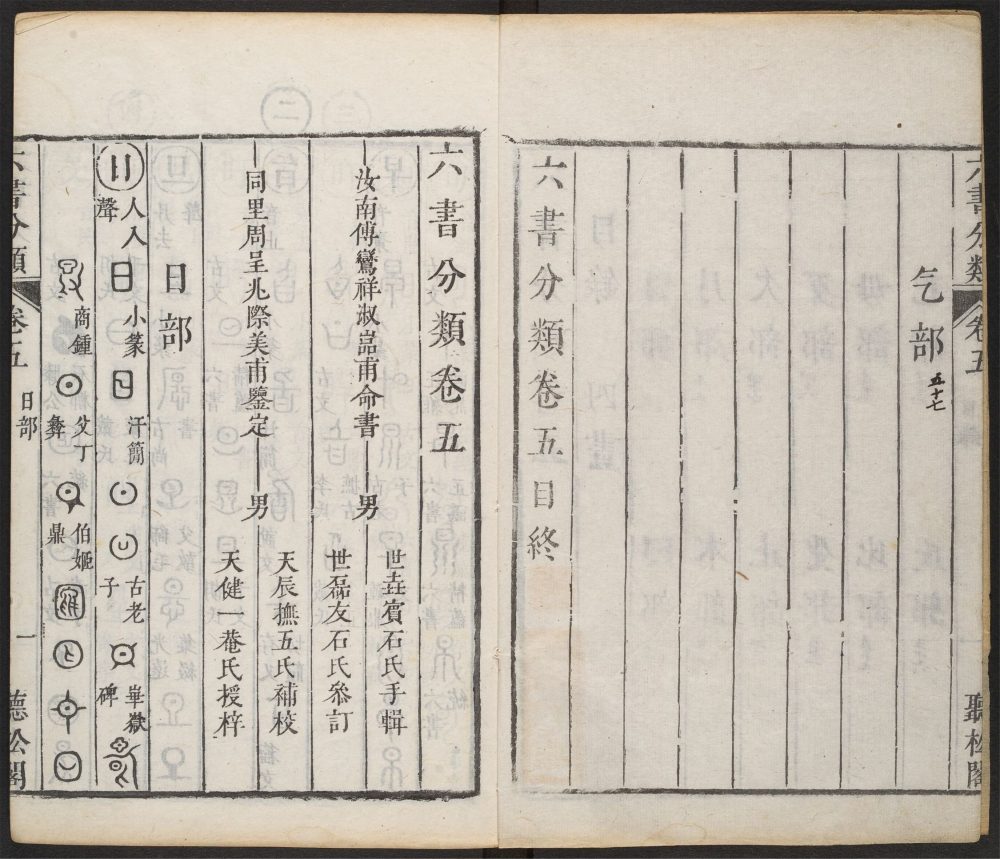 六書分類
卷五
聽松閣
气部 五十七
六書分類卷五目終
六書分類卷五
汝南傅鸞祥淑喦甫命書
男
世垚賓石氏手輯
世磊友石氏叅訂
同里周呈兆際美甫鑒定
男
天辰撫五氏補校
天健一菴氏授梓
日部
日 人入聲
小篆
汗簡
古老子
華嶽碑
商鍾
父丁彝
伯姬鼎
六書分類
卷五
日部
一
聽松閣